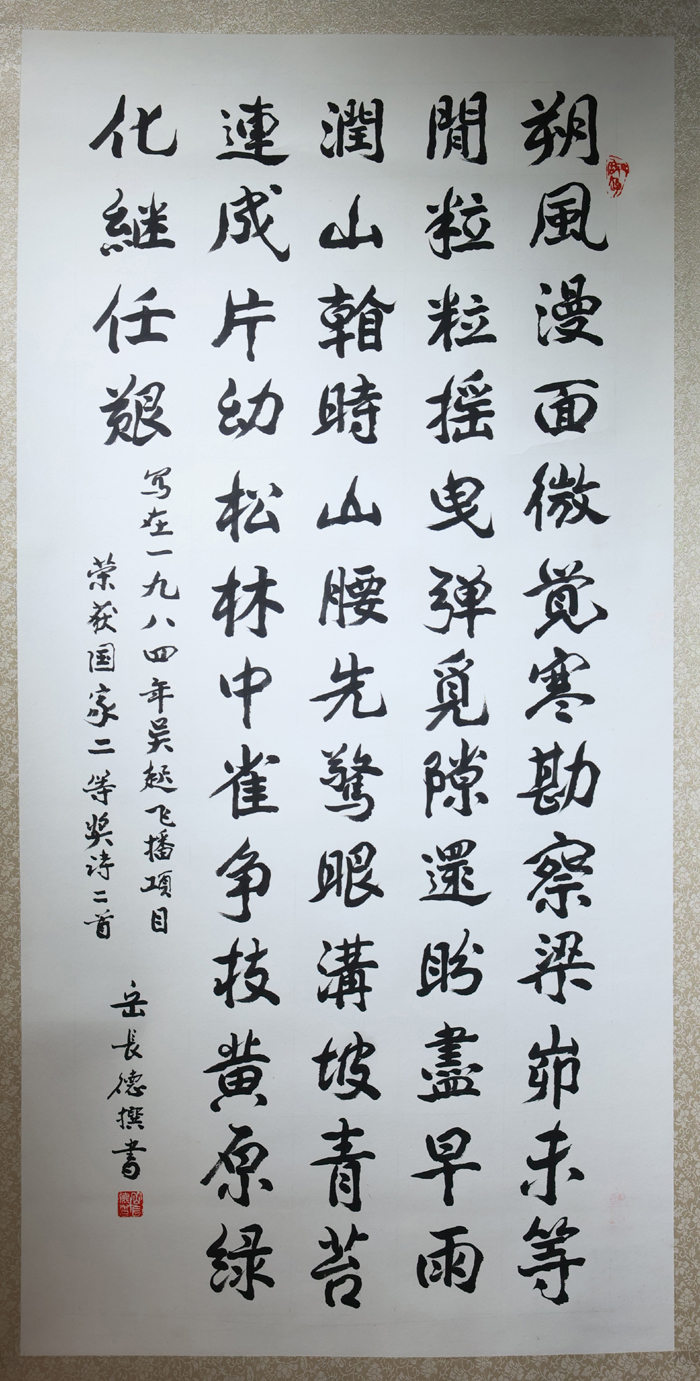 朔風漫面微觉寒勘察梁峁未等
閒粒粒摇曳弹覓隙還盼盡早雨
潤山翰時山腰先驚眼溝坡青苔
連成片幼松林中雀争技黄原绿
化継任艱
写在一九八四年吴起飞播项目
荣获国家二等奖诗二首
岳長德撰書